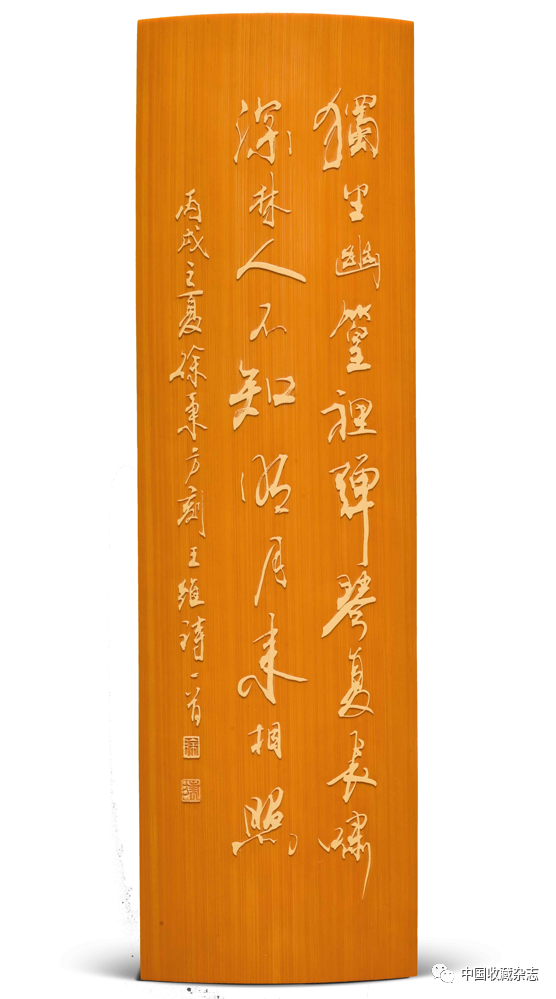 獨坐幽篁裡彈琴复長嘯
深林人不知明月來相照
丙戌之夏徐秉方刻王維詩一首
中国收藏杂志